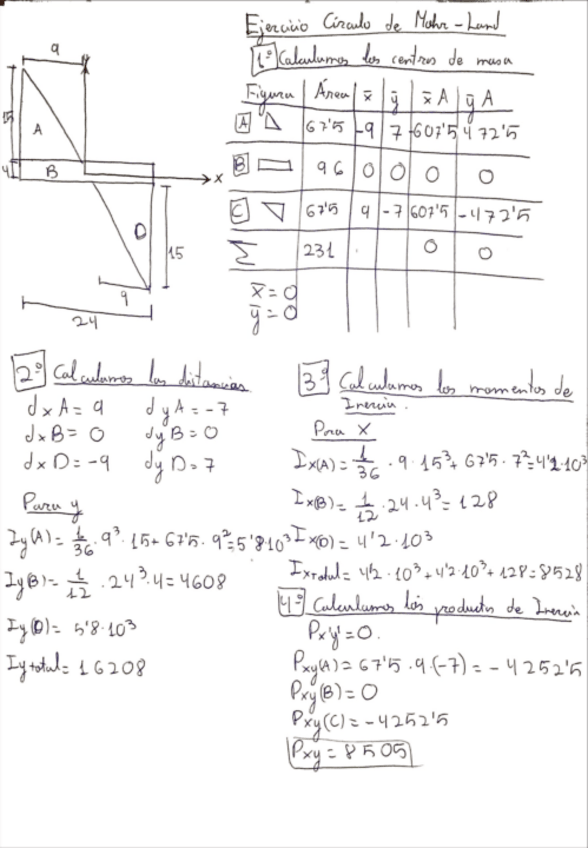 Ejercicio Círculo de Mohr-Land
1º Calculamos los centros de masa
9
15
A
4
B
x
D
15
9
24
Figura Área x̄ ȳ x̄A ȳA
A 67'5 -9 7 -607'5 472'5
B 96 0 0 0 0
C 67'5 9 -7 607'5 -472'5
Σ 231 0 0
x̄ = 0
ȳ = 0
2º Calculamos las distancias
dxA = 9 dyA = -7
dxB = 0 dyB = 0
dxD = -9 dyD = 7
Para y
Iy(A) = 1/36 · 9³ · 15 + 67'5 · 9² = 5'8·10³
Iy(B) = 1/12 · 24³ · 4 = 4608
Iy(D) = 5'8·10³
Iytotal = 16208
3º Calculamos los momentos de
Inercia.
Para X
Ix(A) = 1/36 · 9 · 15³ + 67'5 · 7² = 4'2·10³
Ix(B) = 1/12 · 24 · 4³ = 128
Ix(D) = 4'2·10³
Ixtotal = 4'2·10³ + 4'2·10³ + 128 = 8528
4º Calculamos los productos de Inercia
Pxy' = 0.
Pxy(A) = 67'5 · 9 · (-7) = -4252'5
Pxy(B) = 0
Pxy(C) = -4252'5
Pxy = 8505